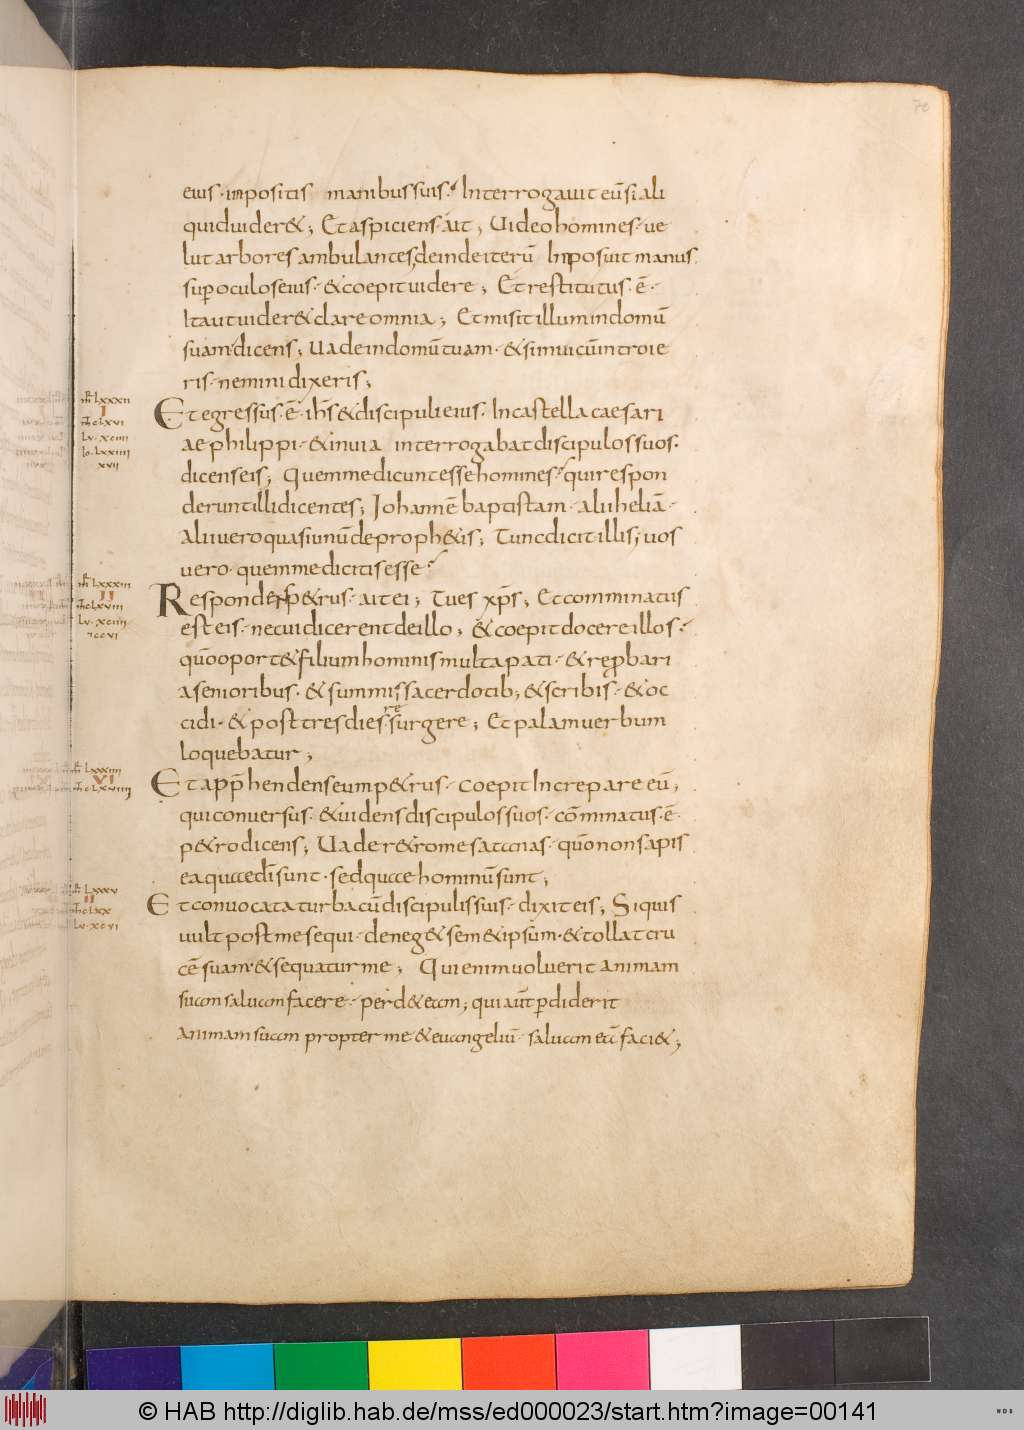 70
eius · inpositis manibus suis · Interrogauit eū si ali
quid uider& ; Et aspiciens · ait ; Uideo homines · ue
lut arbores ambulantes, deinde iterū Inposuit manus
sup oculos eius · & coepit uidere ; Et restitutus · ē ·
Ita ut uider& clare omnia ; Et misit illum in domū
suam · dicens ; Uade in domū tuam · & si in uicū introie
ris · nemini dixeris ;
mr̄ lxxxii
I
mt̄ clxvi
lv · xciiii
Io · lxxiiii
xvii
Et egressus · ē · ih̄s & discipuli eius · In castella caesari
ae philippi · & in uia interrogabat discipulos suos ·
dicens eis ; Quem me dicunt esse homines · qui respon
derunt illi dicentes ; Johannē baptistam · alii heliā ·
Alii uero quasi unū de proph&is ; Tunc dicit illis ; uos
uero · quem me dicitis esse ·
mr̄ lxxxiii
II
mt̄ clxviii
lv · xciiii
Respondens p&rus · ait ei ; Tu es xp̄s ; Et comminatus
est eis · ne cui dicerent de illo ; & coepit docere illos ·
qūo oport& filium hominis multa pati · & reprobari
a senioribus · & summis sacerdotib; & scribis · & oc
cidi · & post tres dies · resurgere ; Et palam uerbum
loquebatur ;
mr̄ lxxxiiii
VI
mt̄ clxviiii
Et app̄hendens eum p&rus · coepit Increpare eū ;
qui conuersus · & uidens discipulos suos · cōminatus · ē ·
p&ro dicens ; Uade r&ro me satanas · qūo non sapis
ea quae dī sunt · sed quae hominū sunt ;
mr̄ lxxxv
II
mt̄ clxx
lv · xcvi
Et conuocata turba cū discipulis suis · dixit eis ; Si quis
uult post me sequi · deneg& sem&ipsum · & tollat cru
cē suam · & sequatur me ; Qui enim uoluerit animam
suam saluam facere · perd& eam ; qui aūt pdiderit
animam suam propter me & euangeliū · saluam eā faci& ;
© HAB http://diglib.hab.de/mss/ed000023/start.htm?image=00141
WDB